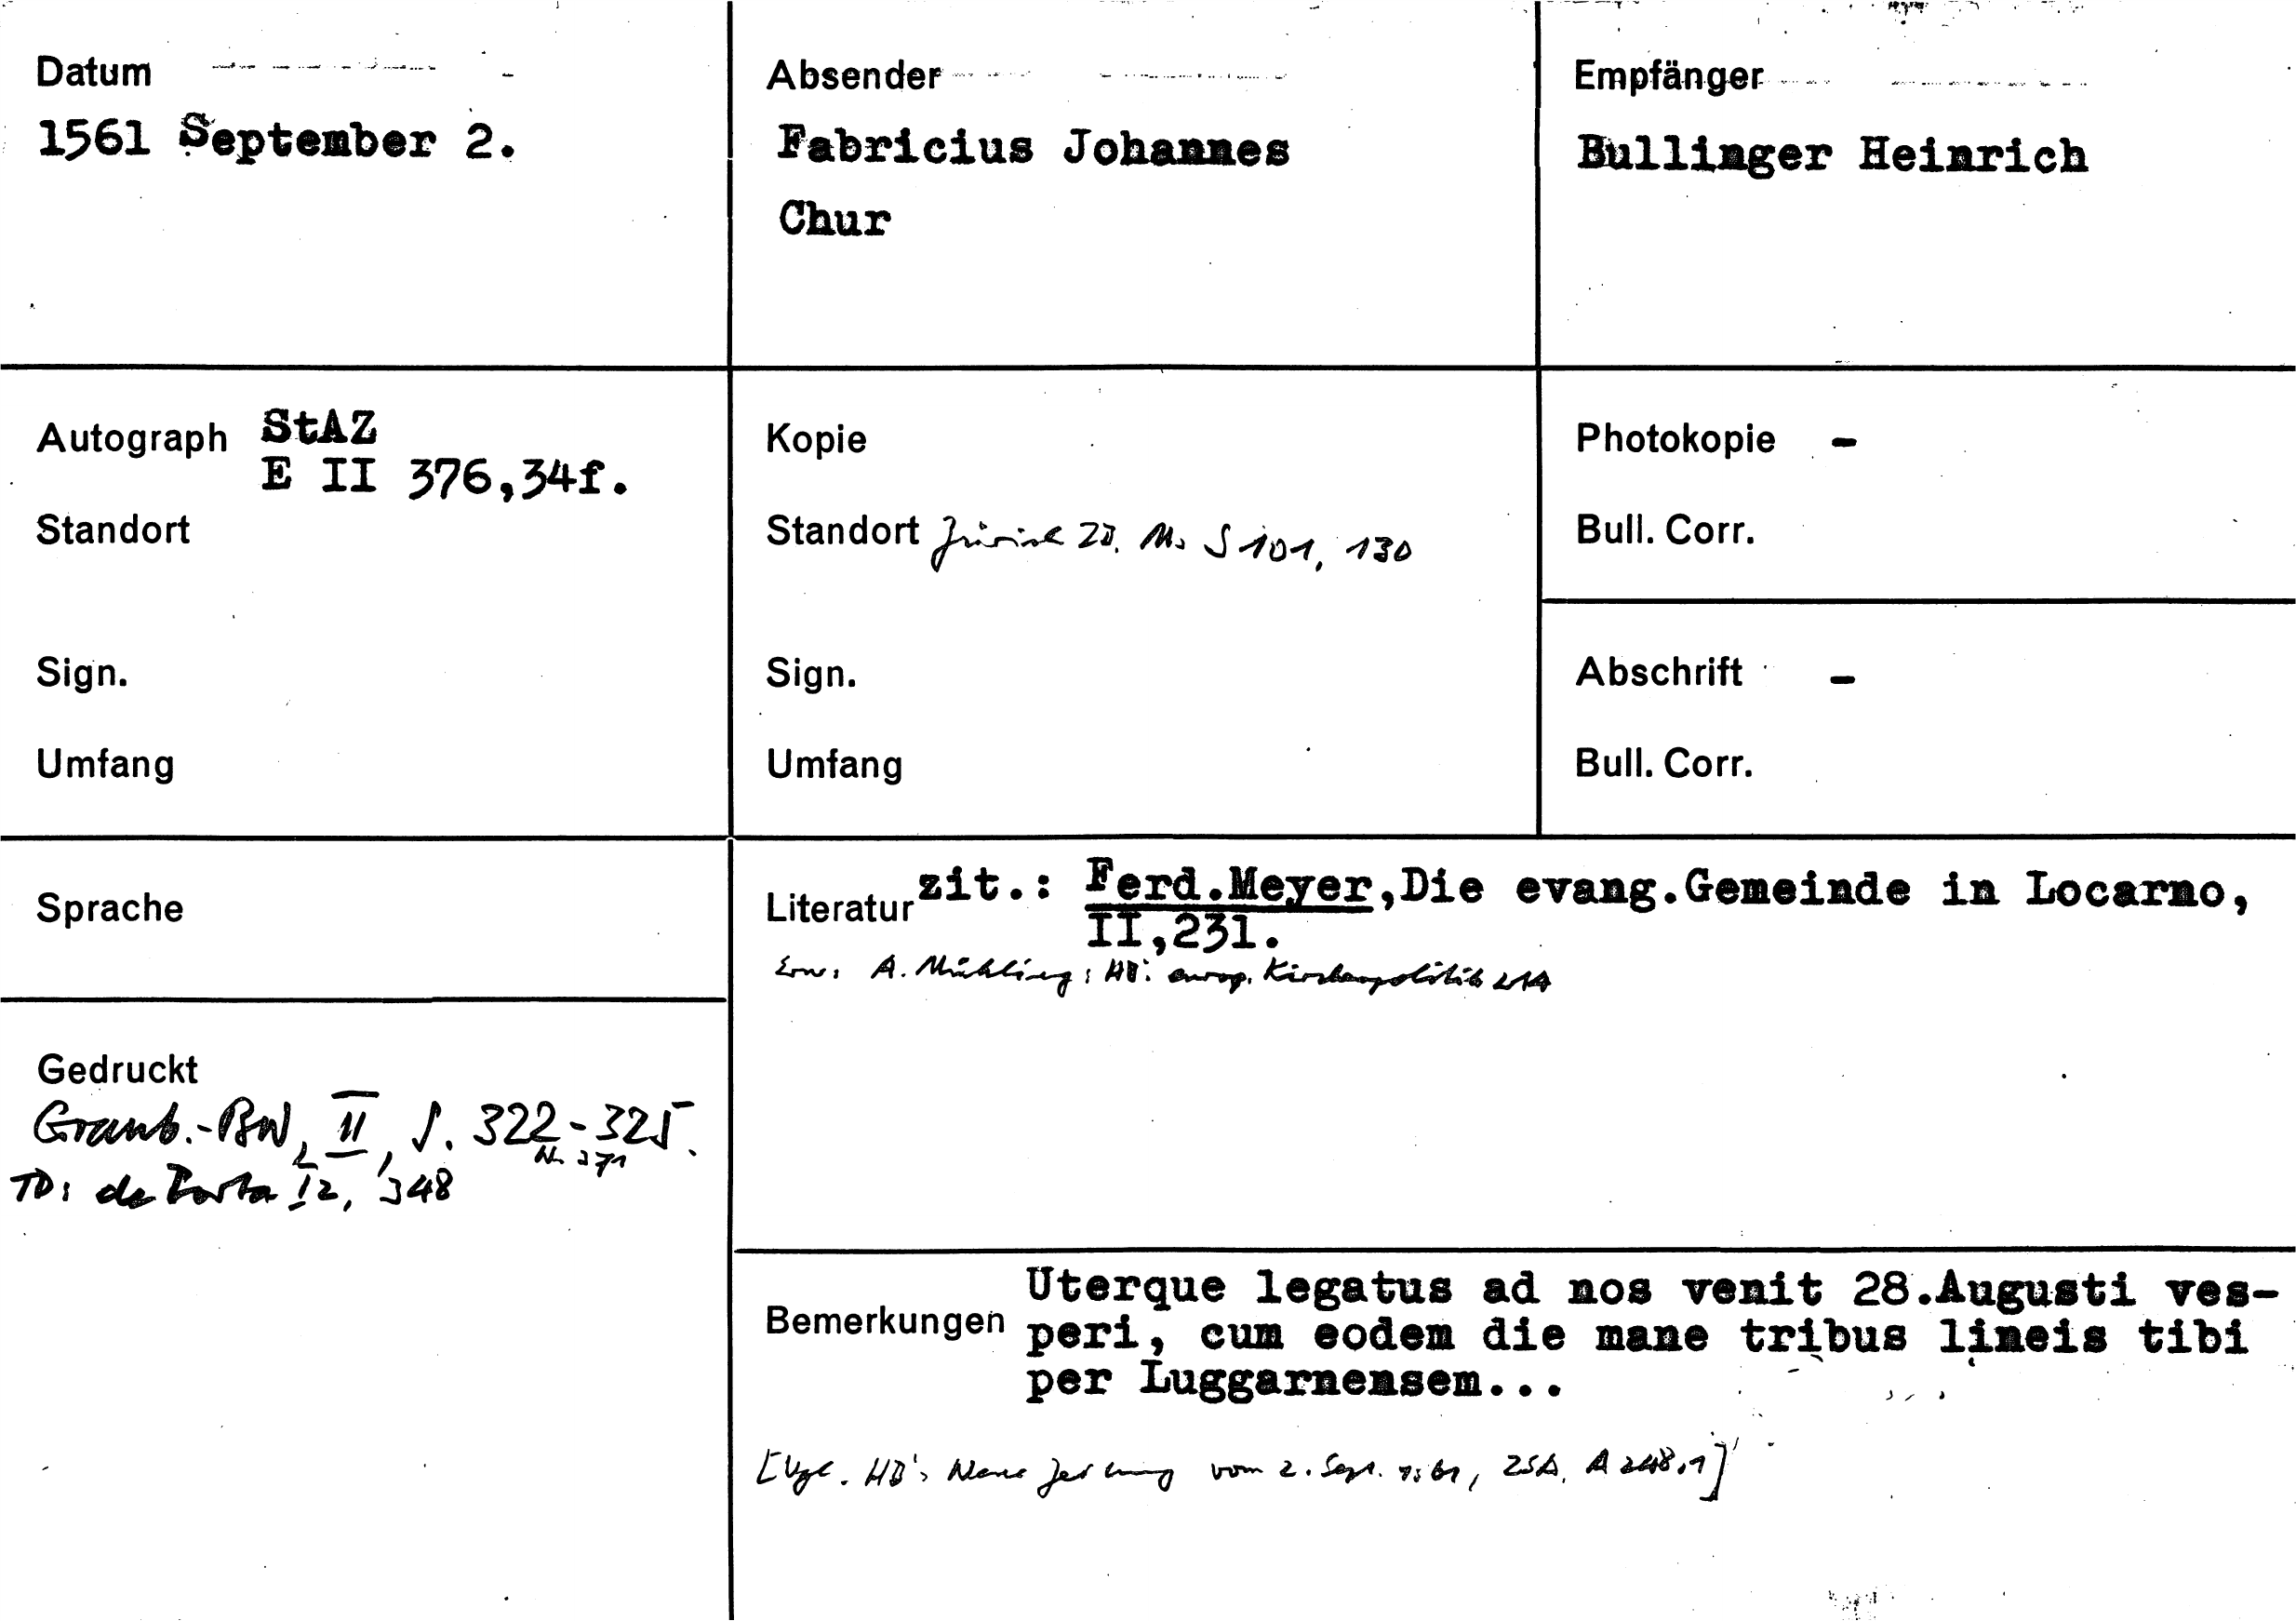 Datum
1561 September 2.
Absender
Fabricius Johannes
Chur
Empfänger
Bullinger Heinrich
Autograph StAZ
E II 376,34f.
Standort
Sign.
Umfang
Kopie
Standort Zürich ZB, Ms S 101, 130
Sign.
Umfang
Photokopie -
Bull. Corr.
Abschrift -
Bull. Corr.
Sprache
Gedruckt
Graub.-BW, II, S. 322-325.
Nr. 371
TD: de Porta I2, 348
Literatur zit.: Ferd.Meyer,Die evang.Gemeinde in Locarno,
II,231.
Erw: A. Mühling: HB: europ. Kirchenpolitik
Bemerkungen Uterque legatus ad nos venit 28.Augusti ves-
peri, cum eodem die mane tribus lineis tibi
per Luggarnensem...
[Vgl. HB's Neue Zeitung vom 2. Sept. 1561, A 248.1]